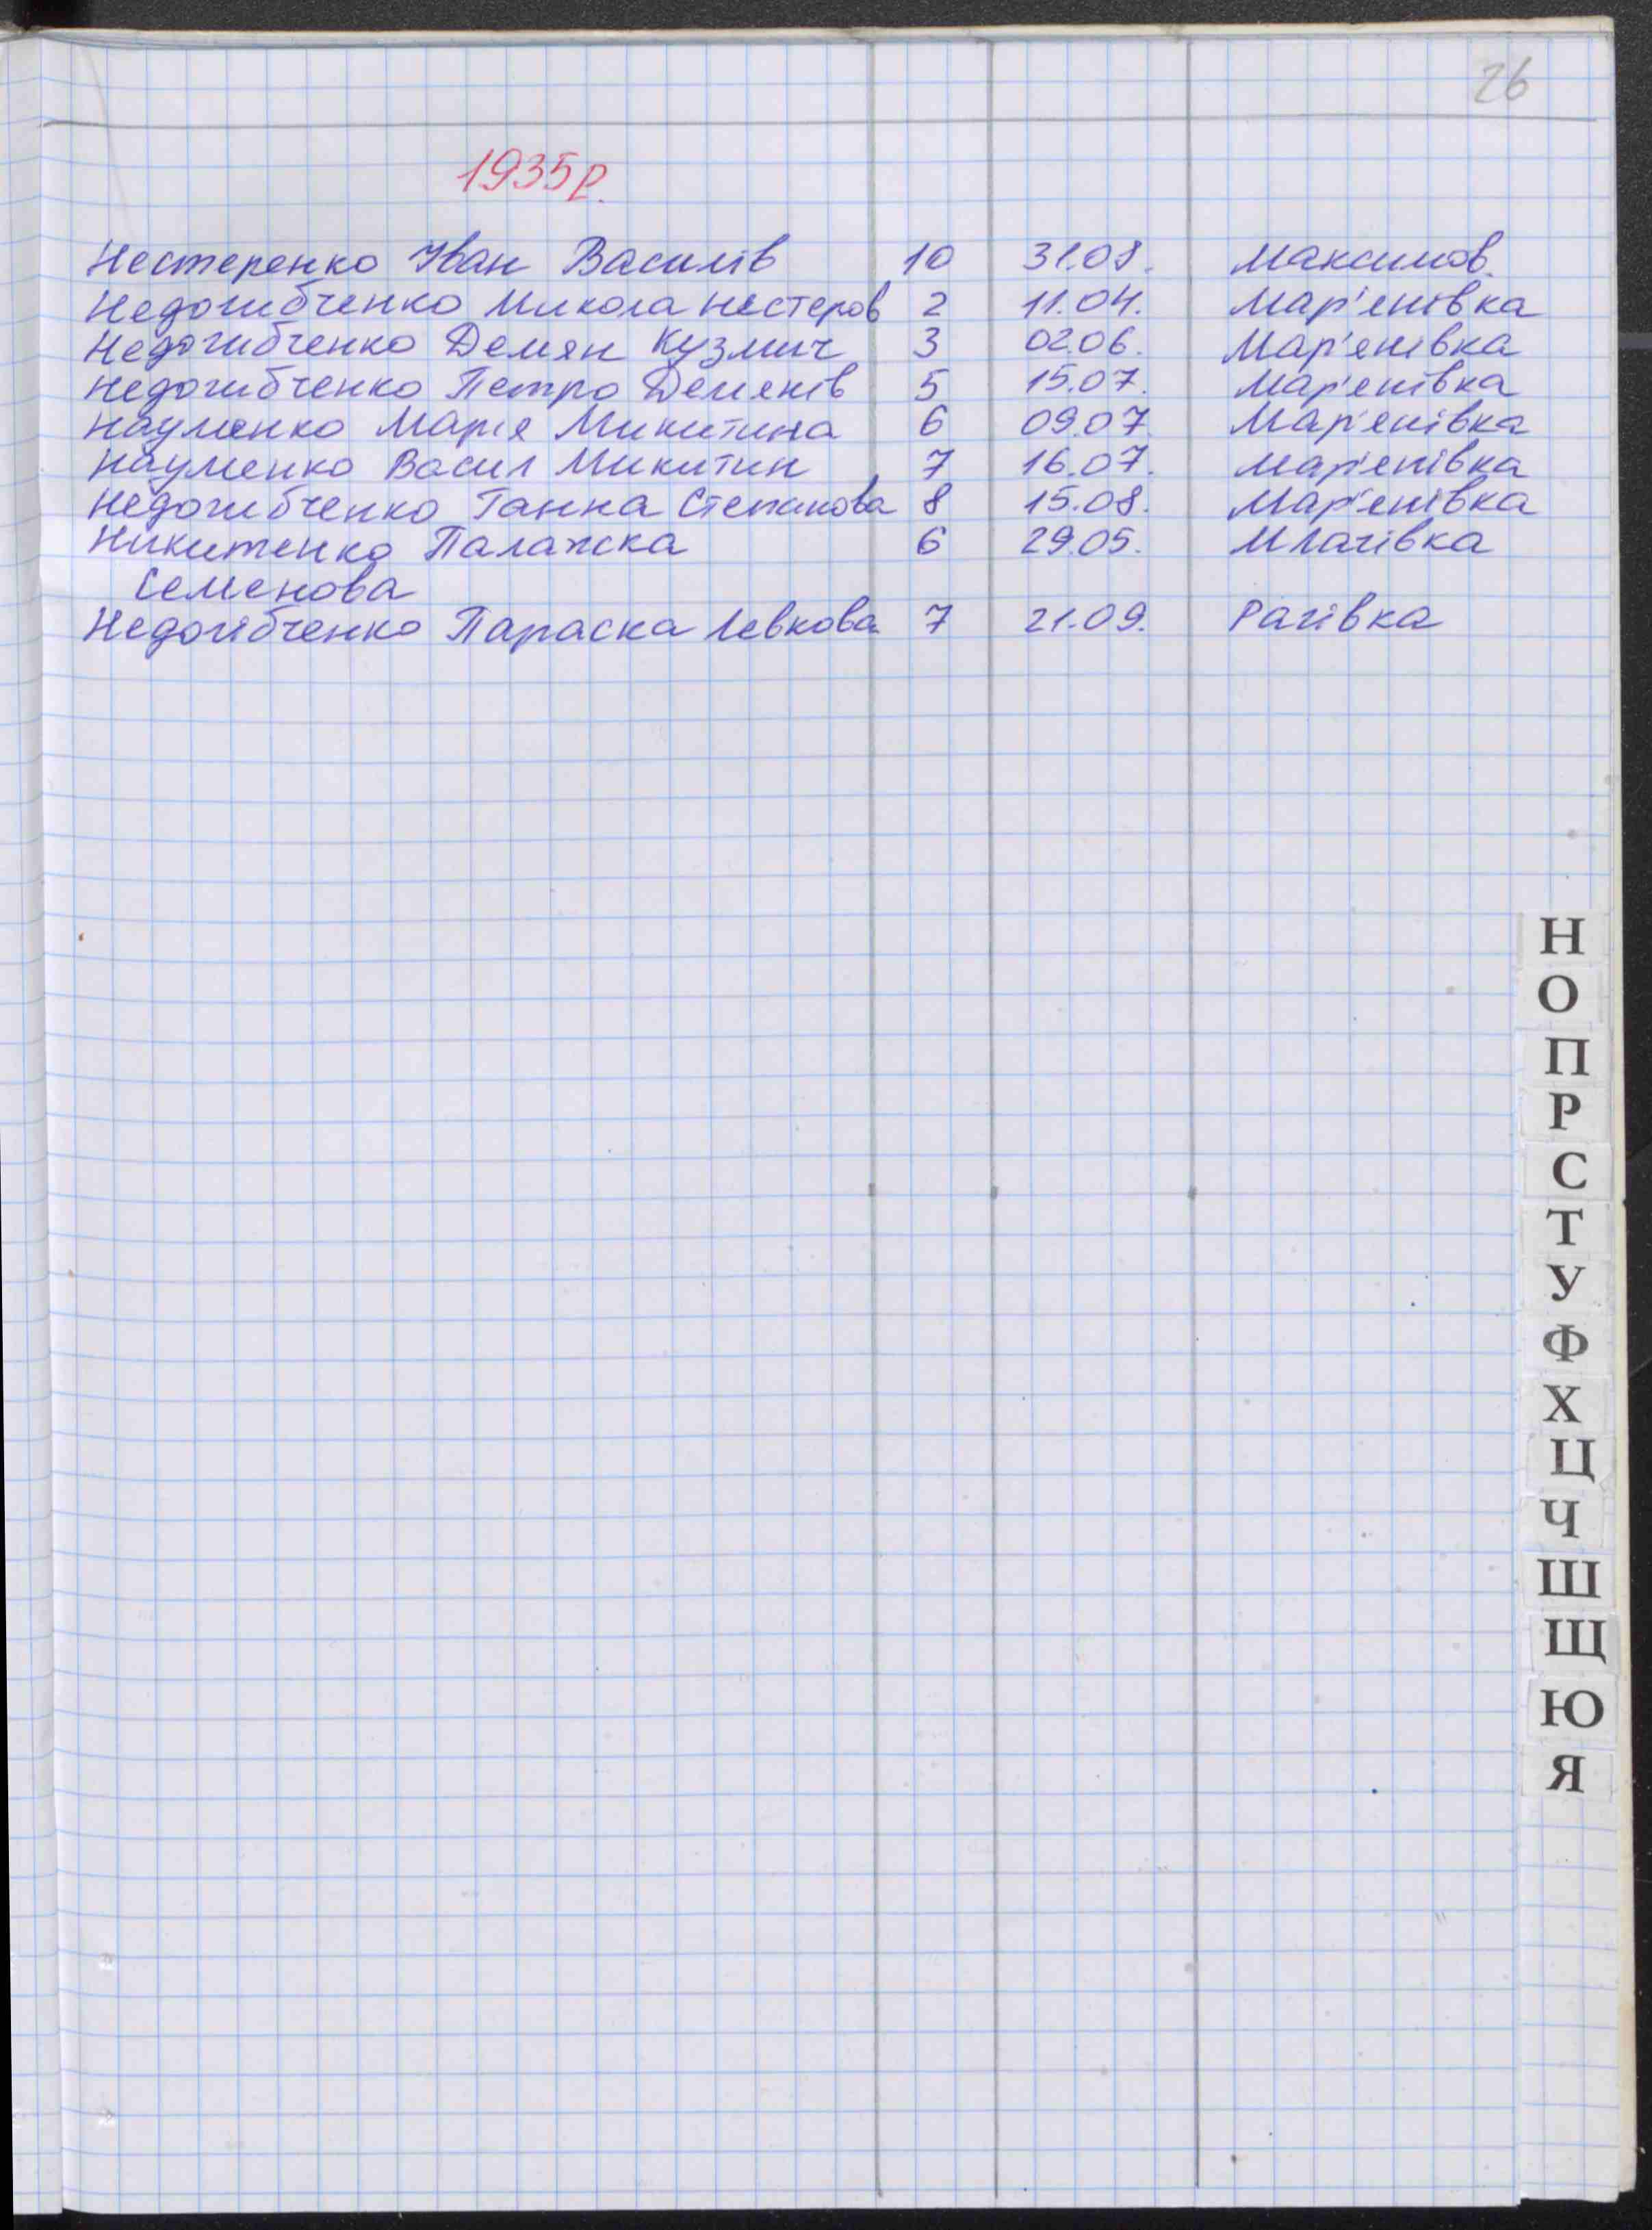 26
1935р.
Нестеренко Іван Василів 10 31.08. Максимов.
Недогибченко Микола Нестеров 2 11.04. Мар'енівка
Недогибченко Демян Кузмич 3 02.06. Мар'енівка
Недогибченко Петро Демянів 5 15.07. Мар'енівка
Науменко Марія Микитина 6 09.07. Мар'енівка
Науменко Васил Микитин 7 16.07. Мар'енівка
Недогибченко Ганна Степанова 8 15.08. Мар'енівка
Никитенко Палажка 6 29.05. Млачівка
Семенова
Недогібченко Параска Левкова 7 21.09. Рагівка
Н
О
П
Р
С
Т
У
Ф
Х
Ц
Ч
Ш
Щ
Ю
Я